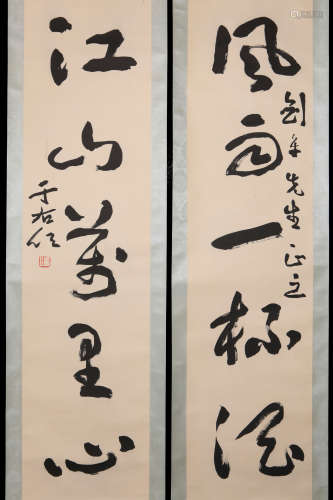 風雨一杯酒
劍平先生正之
江山萬里心
于右任